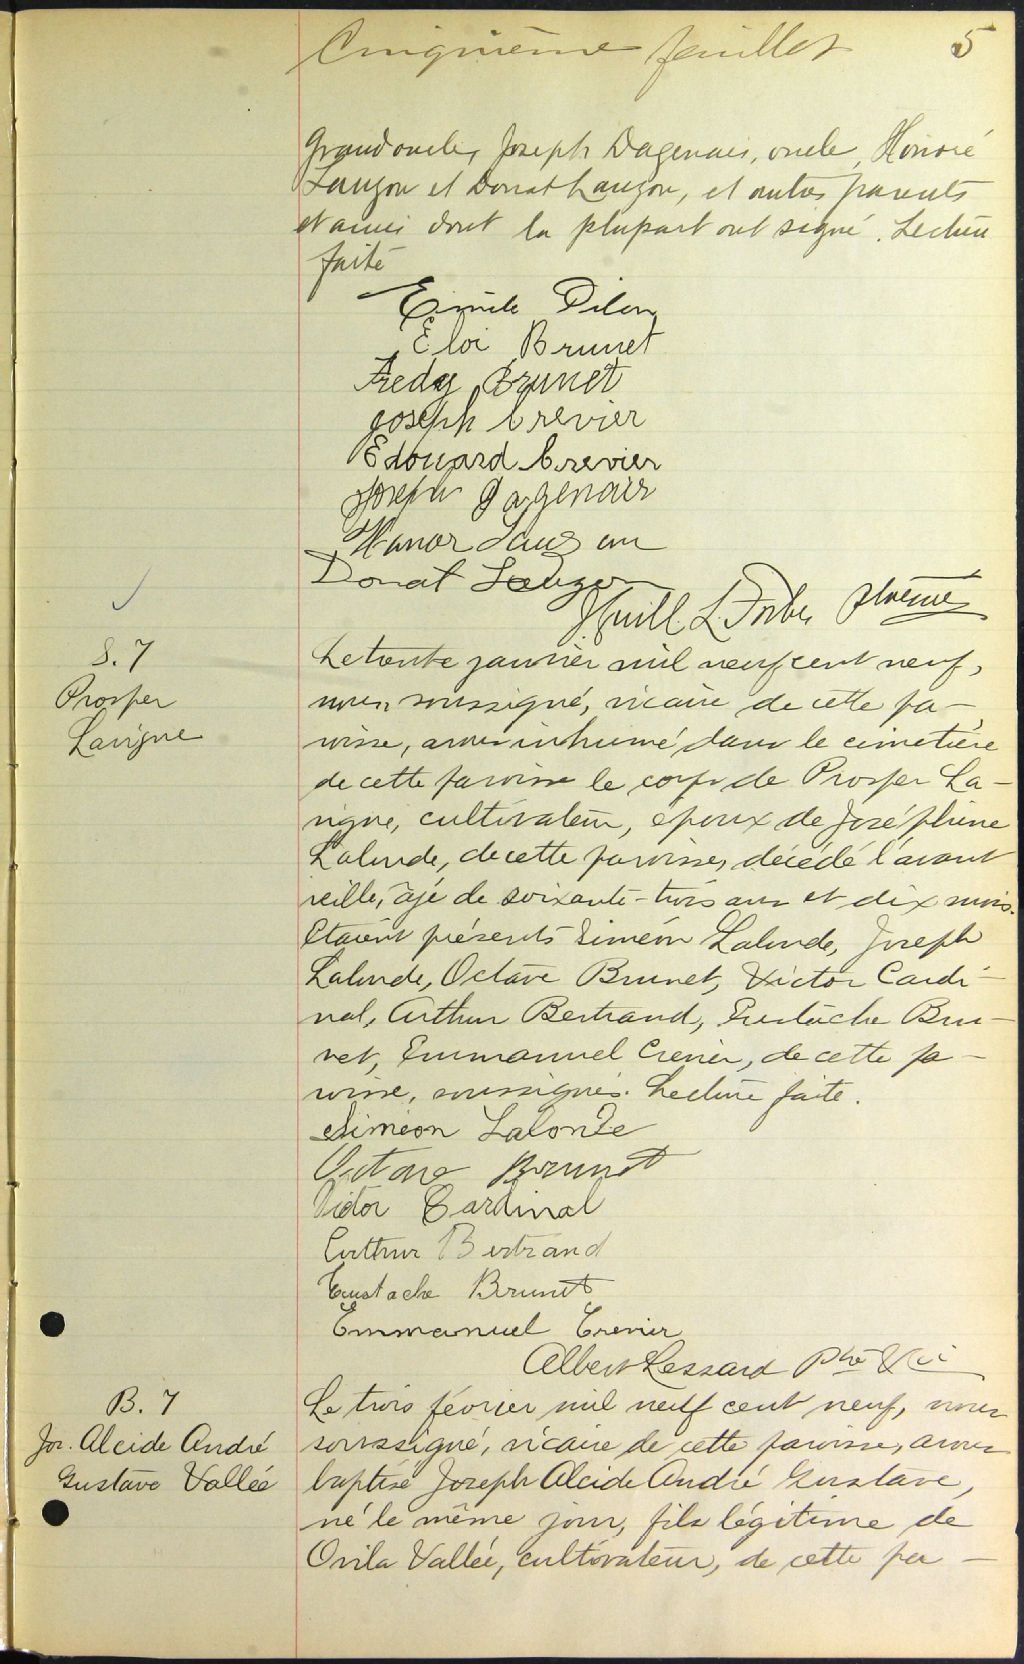 Cinquième feuillet 5
Grandoncles, Joseph Dagenais, oncle, Honoré
Lauzon et Donat Lauzon, et autres parents
et amis dont la plupart ont signé. Lecture
faite
Emile Pilon
Éloi Brunet
Fredy Brunet
Joseph Crevier
Edouard Crevier
Joseph Dagenais
Hanor Lauzon
Donat Lauzon
J. Guill. L. Forbes ptre
S. 7
Prosper
Lavigne
Le trente janvier mil neuf cent neuf,
nous, soussigné, vicaire de cette pa-
roisse, avons inhumé dans le cimetière
de cette paroisse le corps de Prosper La-
vigne, cultivateur, époux de Joséphine
Lalonde, de cette paroisse, décédé l'avant
veille, âgé de soixante-trois ans et dix mois.
Etaient présents Siméon Lalonde, Joseph
Lalonde, Octave Brunet, Victor Cardi-
nal, Arthur Bertrand, Eustache Bru-
net, Emmanuel Crevier, de cette pa-
roisse, soussignés. Lecture faite.
Siméon Lalonde
Octave Brunet
Victor Cardinal
Arthur Bertrand
Eustache Brunet
Emmanuel Crevier
Albert Lessard Ptre Vic
B. 7
Jos. Alcide André
Gustave Vallée
Le trois février mil neuf cent neuf, nous
soussigné, vicaire de cette paroisse, avons
baptisé Joseph Alcide André Gustave,
né le même jour, fils légitime de
Ovila Vallée, cultivateur, de cette pa-